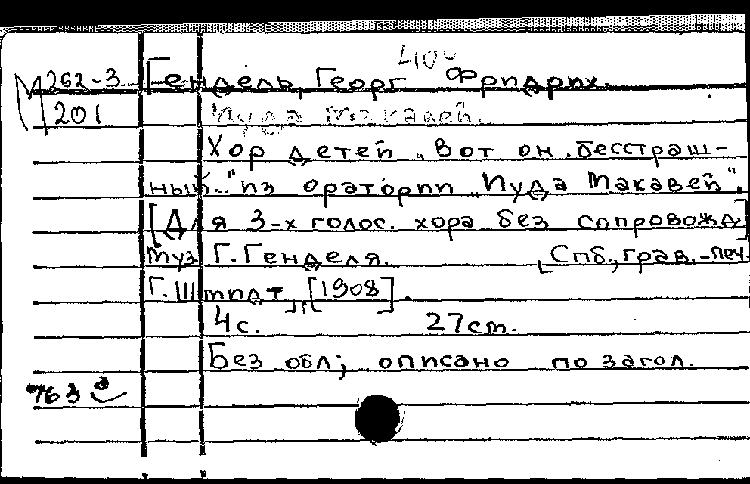 410
М 262-3 Гендель, Георг Фридрих.
201 Иуда Маккавей.
Хор детей „Вот он, бесстраш-
ный.." из оратории „Иуда Макавей".
[Для 3-х голос. хора без сопровожд]
муз Г. Генделя. [Спб, грав.-печ
Г. Шмидт, [1908].
4с. 27cm.
Без обл; описано по загол.
763